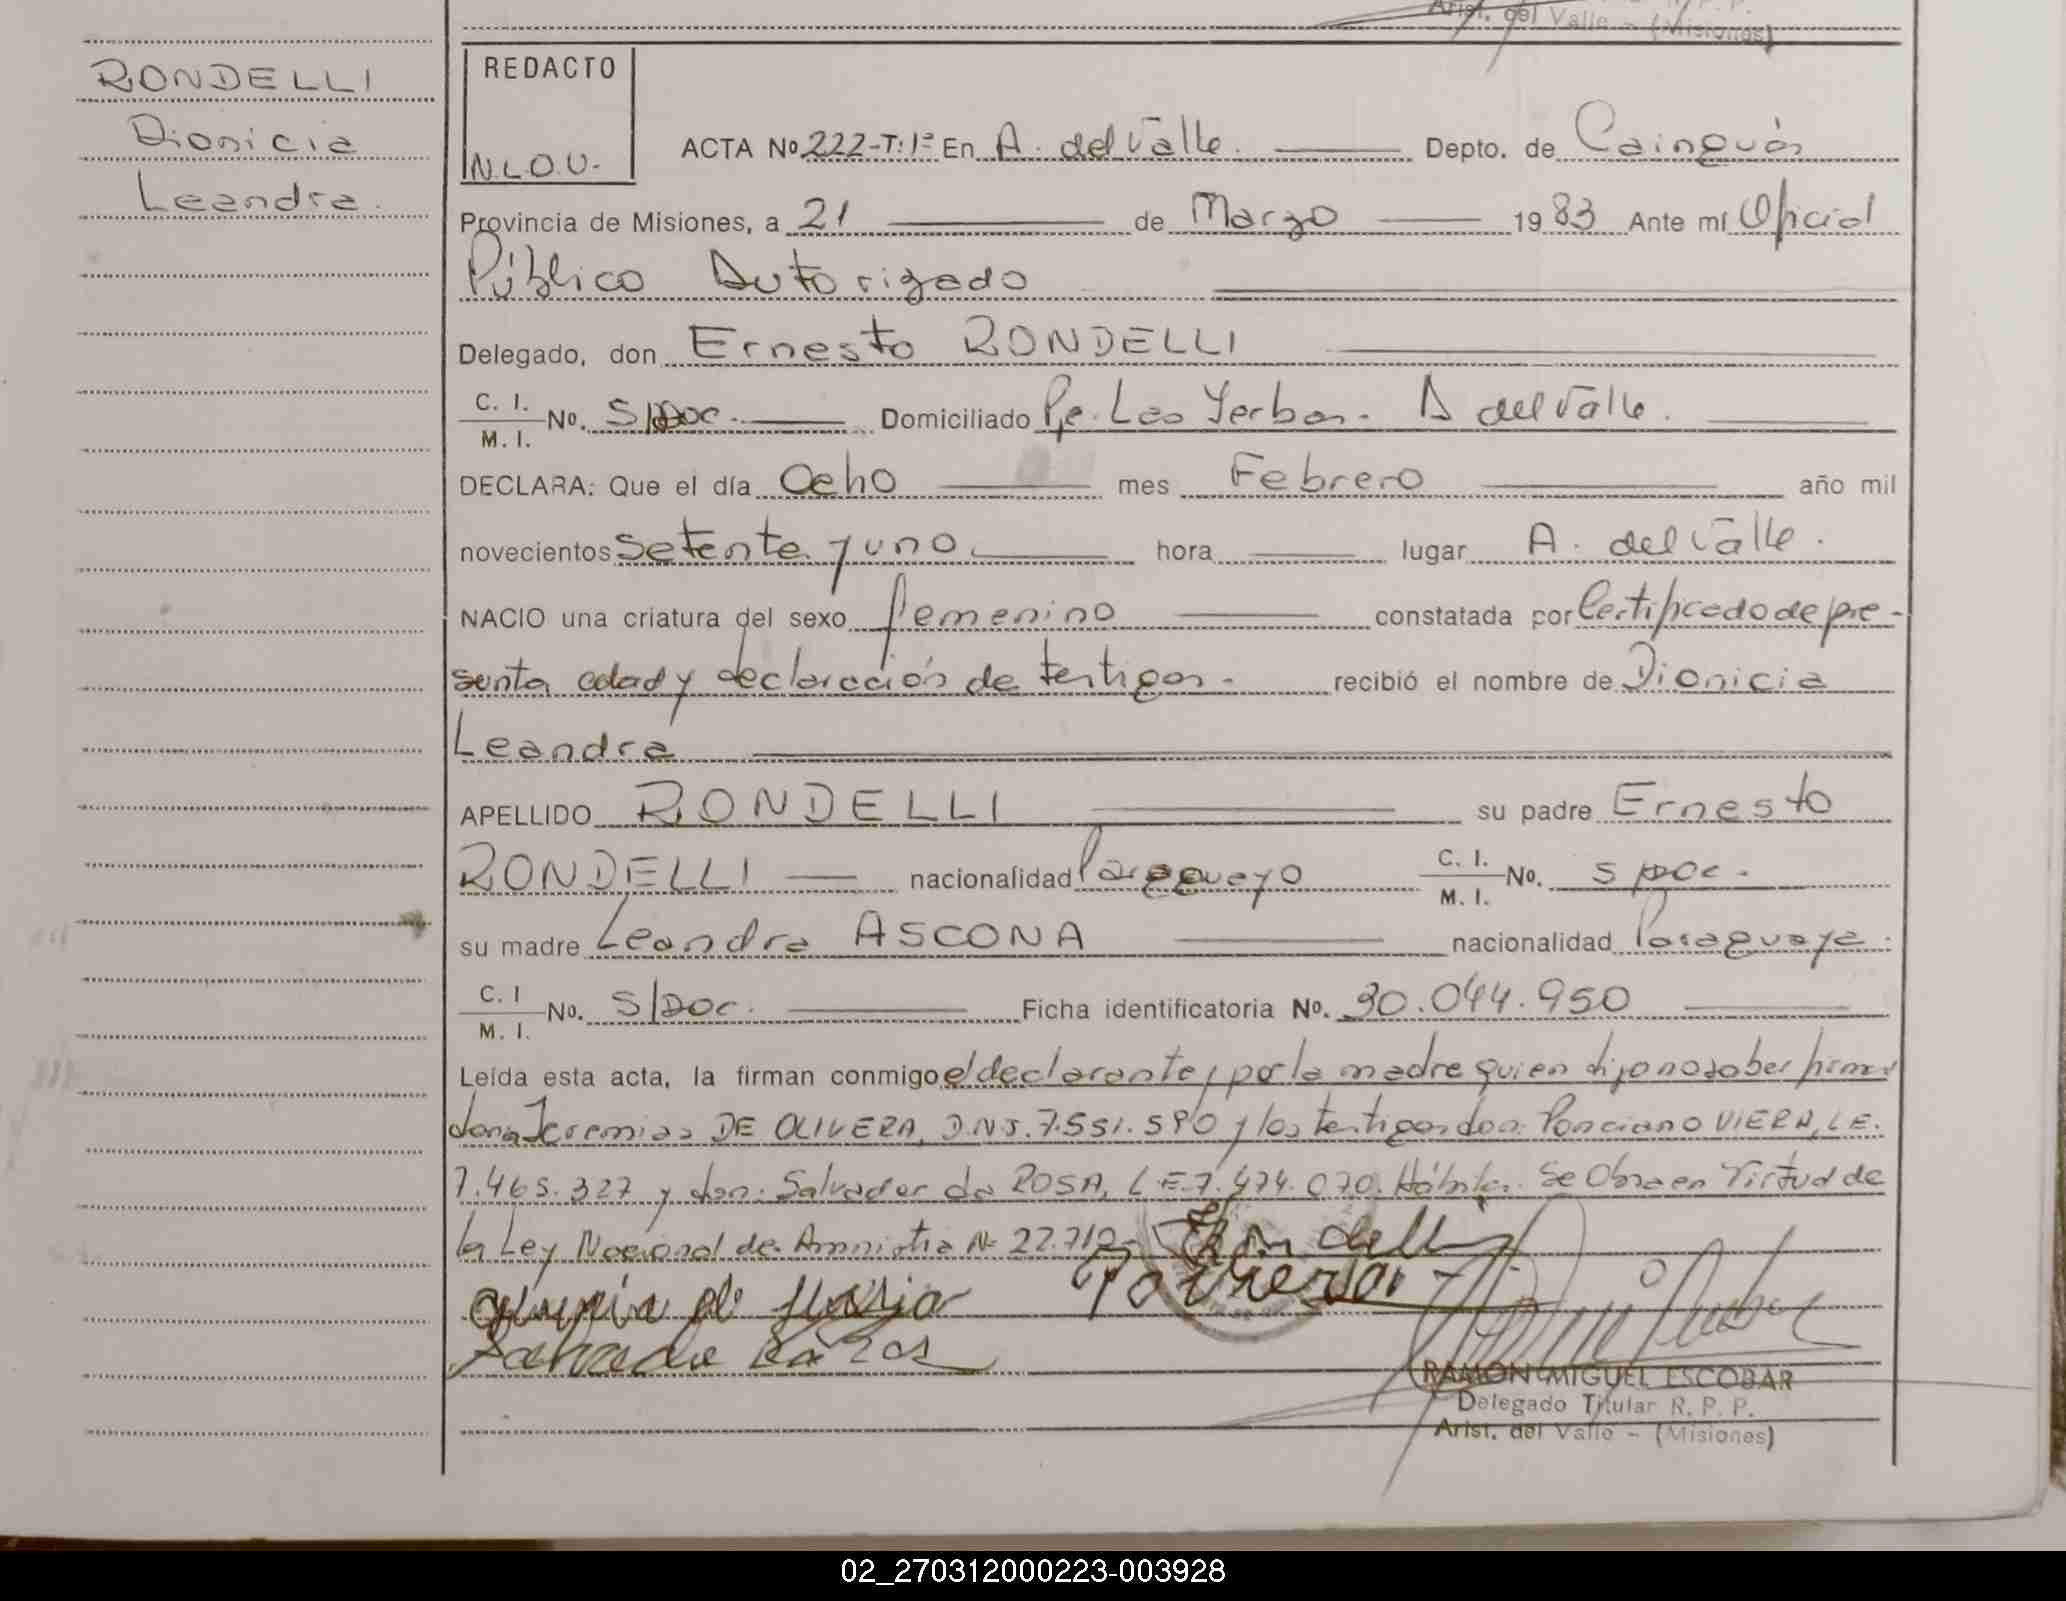 Arist. del Valle - (Misiones)
RONDELLI
Dionicia
Leandra.
REDACTO
N.L.O.U.
ACTA Nº 222-T:1º En A. del Valle. Depto. de Cainguás
Provincia de Misiones, a 21 de Marzo 1983 Ante mí Oficial
Público Autorizado
Delegado, don Ernesto RONDELLI
C. I.
M. I. No. S/Doc. Domiciliado Pje. Las Yerbas. A del Valle.
DECLARA: Que el día Ocho mes Febrero año mil
novecientos setenta y uno hora lugar A. del Valle.
NACIO una criatura del sexo femenino constatada por Certificado de pre-
sunta edad y declaración de testigos. recibió el nombre de Dionicia
Leandra
APELLIDO RONDELLI su padre Ernesto
RONDELLI nacionalidad Paraguayo C. I.
M. I. No. S/Doc.
su madre Leandra ASCONA nacionalidad Paraguaya.
C. I
M. I. No. S/Doc. Ficha identificatoria No. 30.044.950
Leída esta acta, la firman conmigo el declarante, por la madre quien dijo no saber firmar
Jeremias DE OLIVERA, D.N.I. 7.551.590 y los testigos don: Ponciano VIERA, L.E.
7.465.327 y don: Salvador da ROSA, L.E. 7.474.070. Hábiles. Se Obra en Virtud de
la Ley Nacional de Amnistia Nº 22.712-
RAMON MIGUEL ESCOBAR
Delegado Titular R. P. P.
Arist. del Valle - (Misiones)
02_270312000223-003928